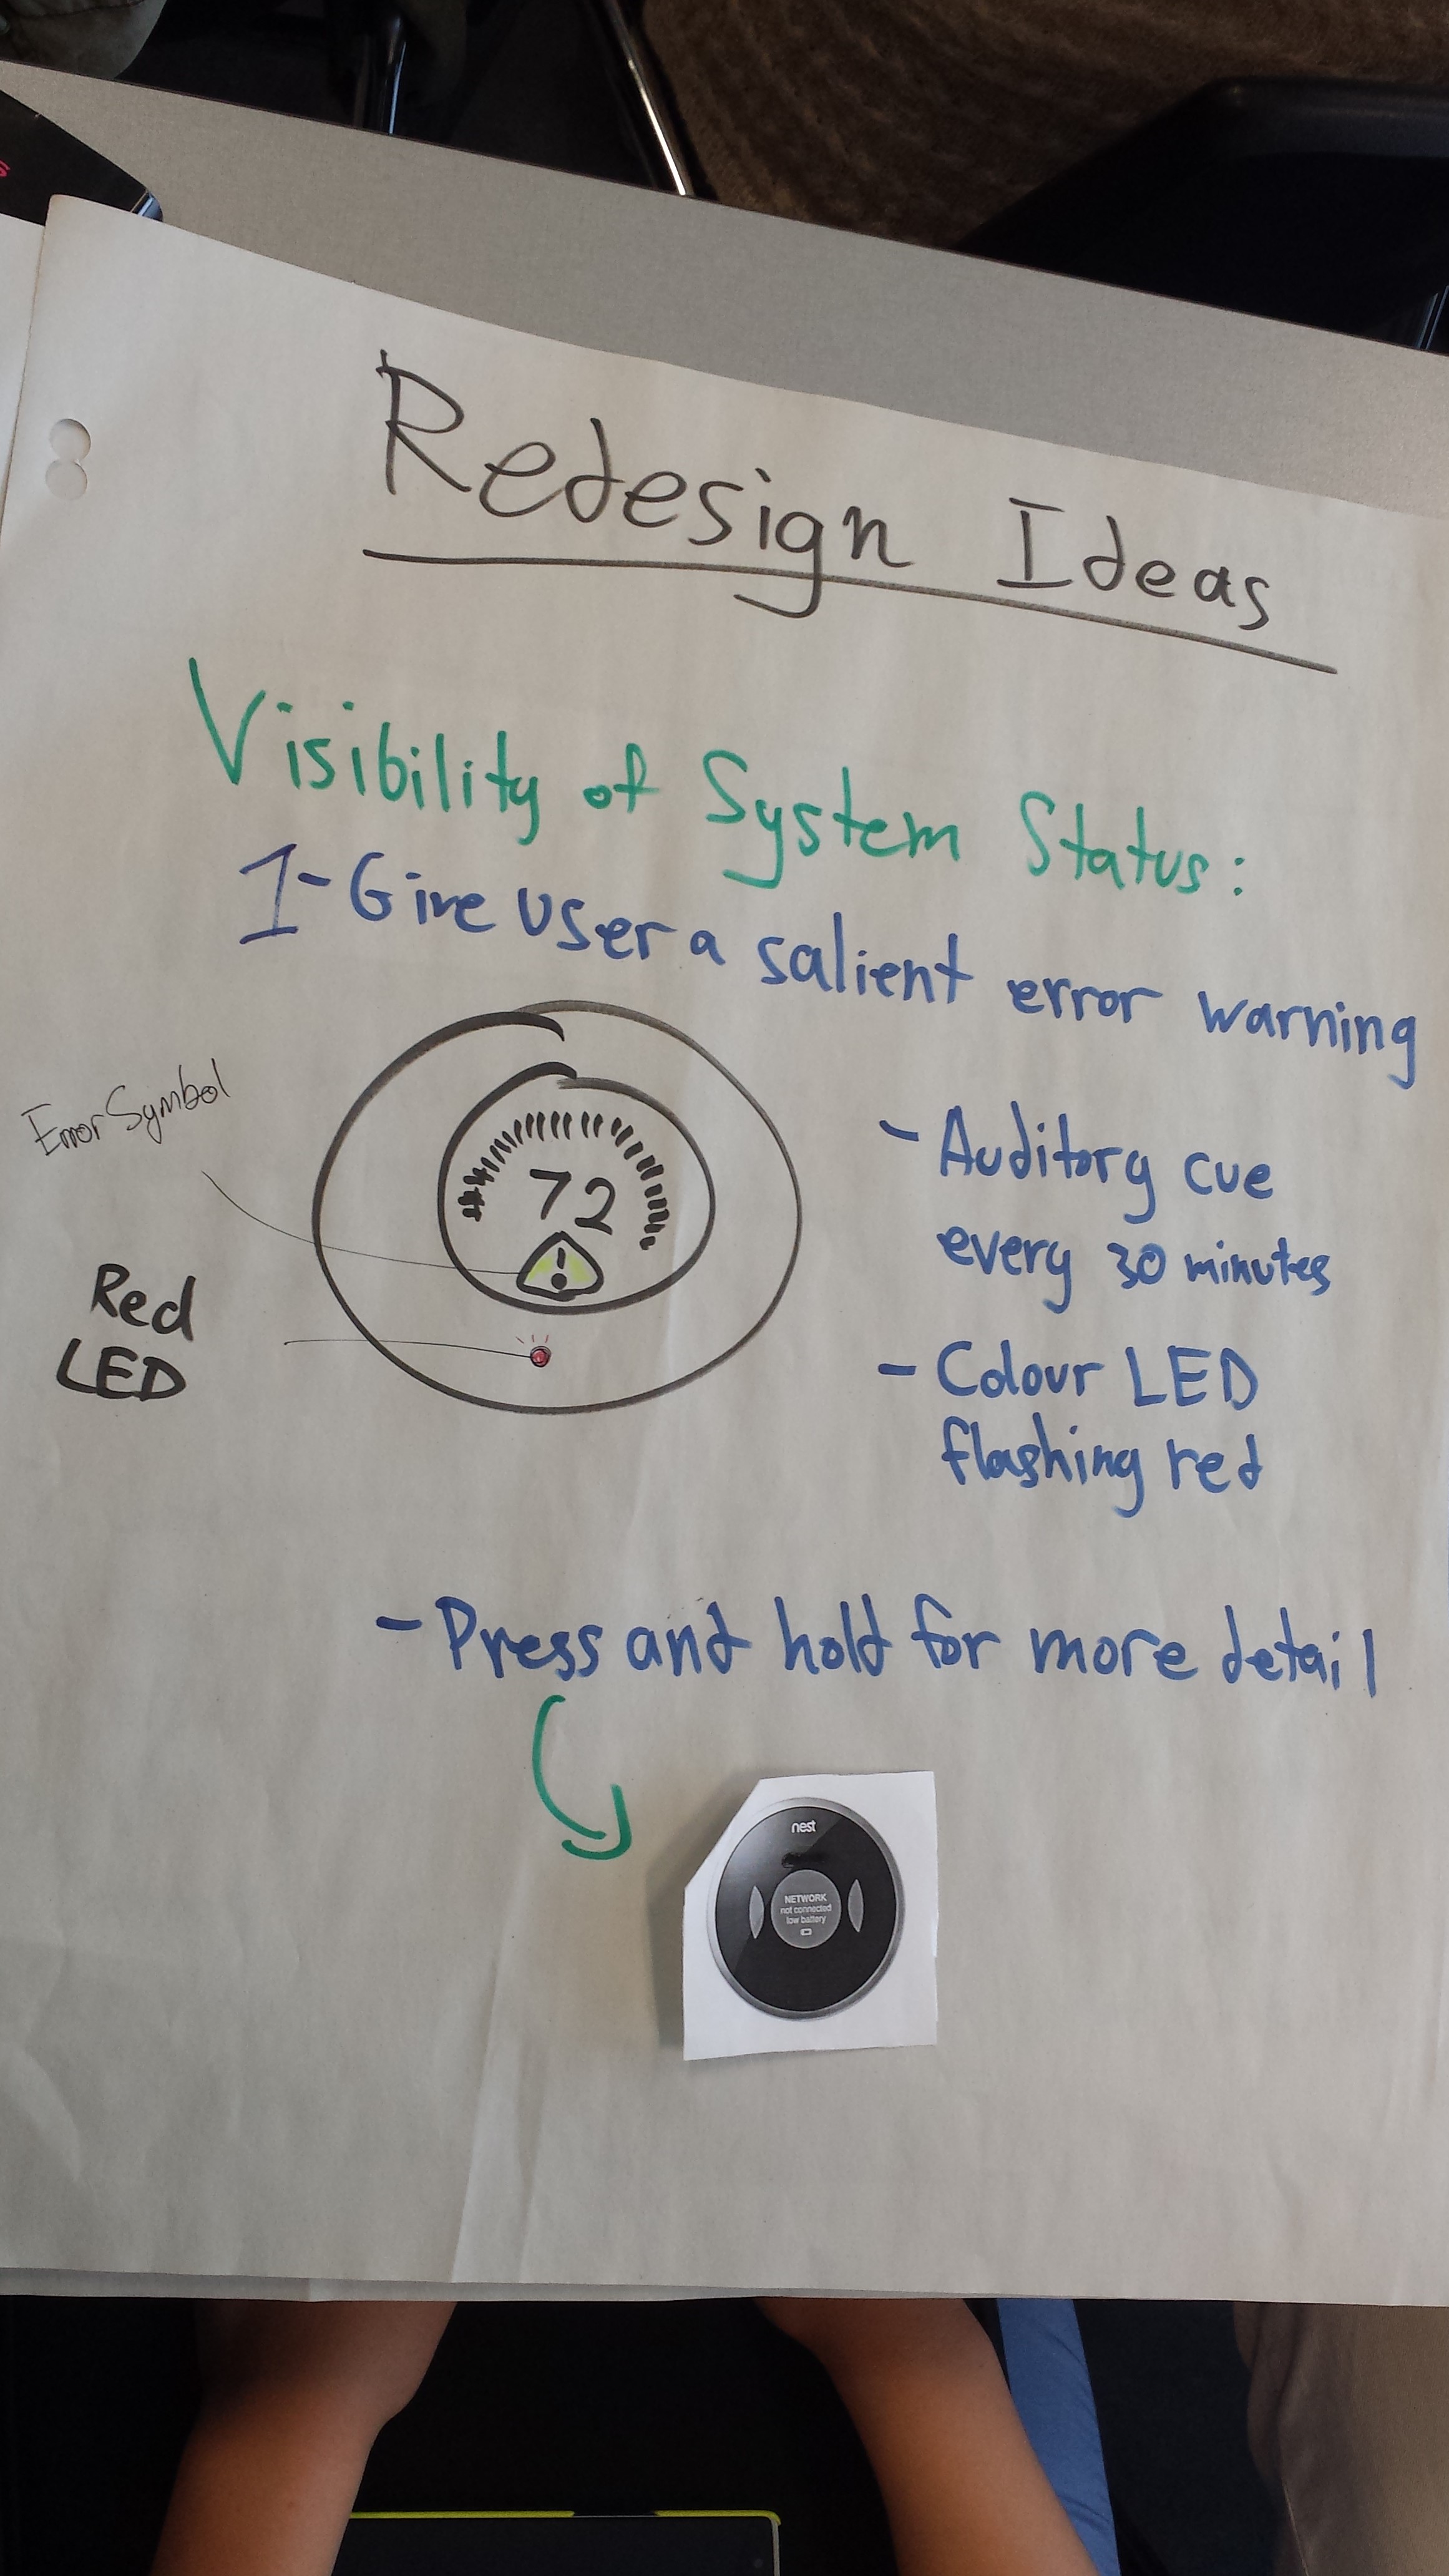 Redesign Ideas
Visibility of System Status:
1- Give user a salient error warning
Error Symbol
72
!
Red
LED
- Auditory cue
every 30 minutes
- Colour LED
flashing red
- Press and hold for more detail
nest
NETWORK
not connected
low battery